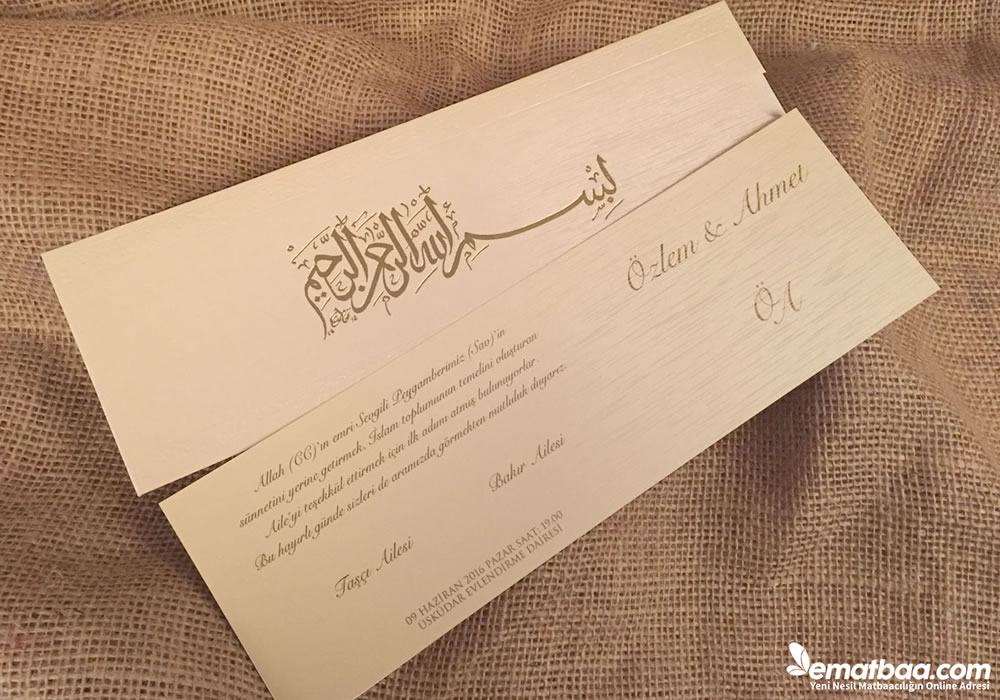 بسم الله الرحمن الرحيم
Özlem & Ahmet
ÖA
Allah (CC)'ın emri Sevgili Peygamberimiz (Sav)'in
sünnetini yerine getirmek, İslam toplumunun temelini oluşturan
Aile'yi teşekkül ettirmek için ilk adımı atmış bulunuyorlar.
Bu hayırlı günde sizleri de aramızda görmekten mutluluk duyarız.
Taşçı Ailesi
Bakır Ailesi
09 HAZIRAN 2016 PAZAR SAAT: 19.00
ÜSKÜDAR EVLENDİRME DAİRESİ
ematbaa.com
Yeni Nesil Matbaacılığın Online Adresi